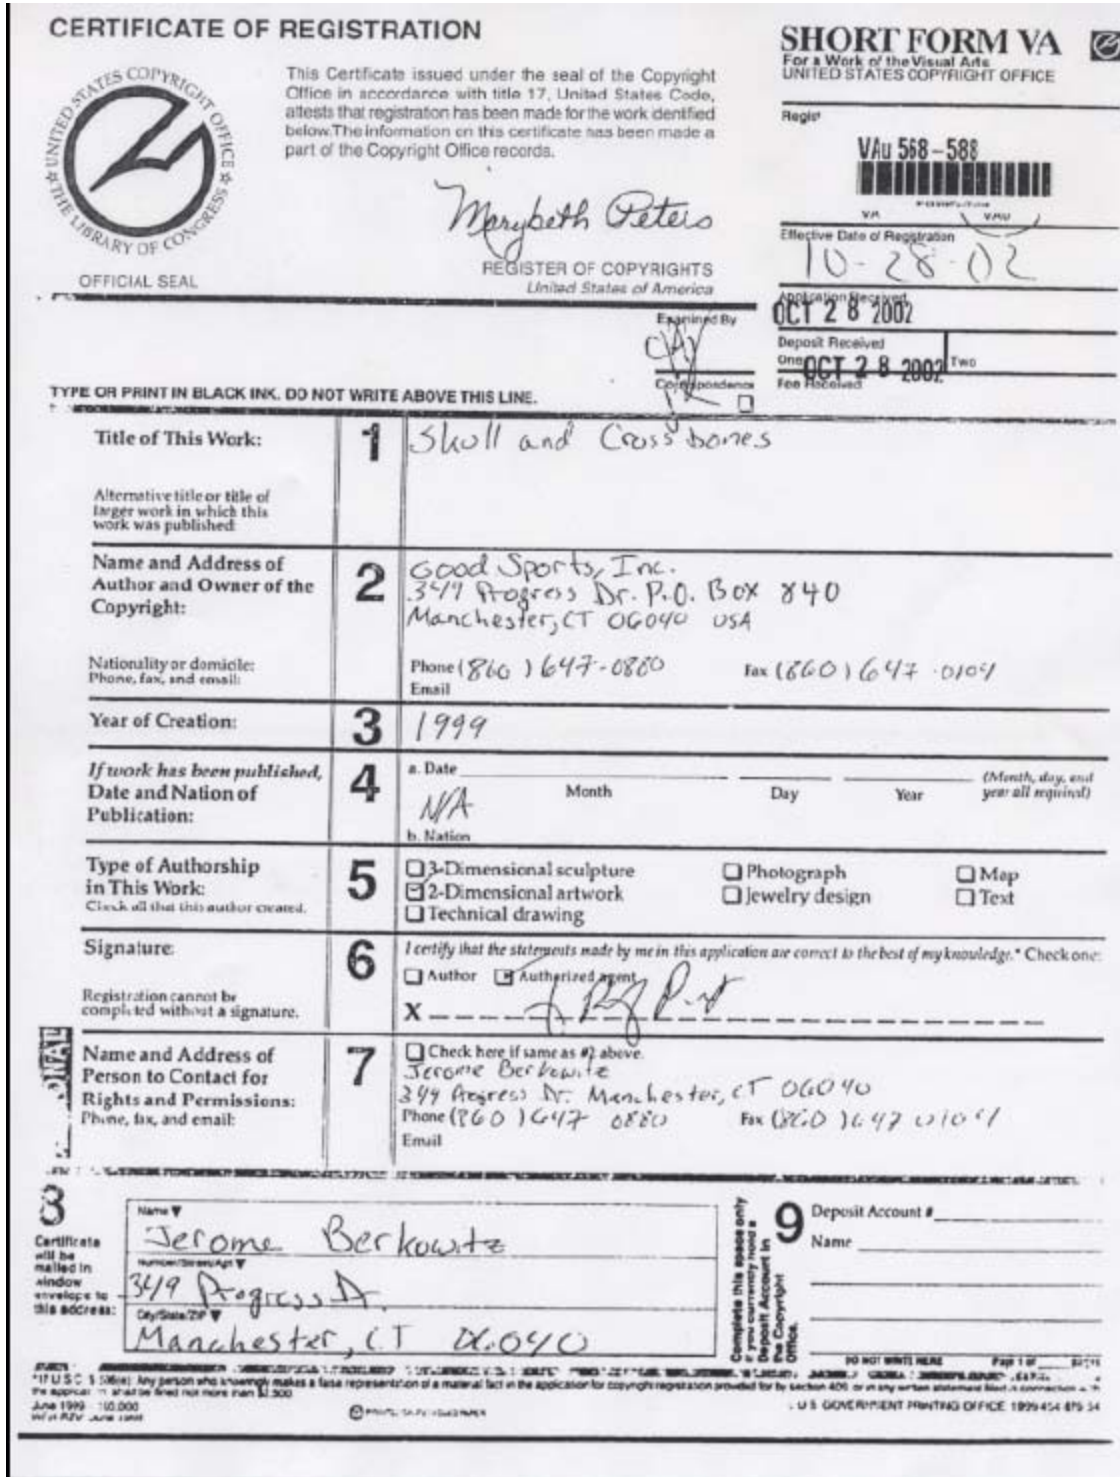 CERTIFICATE OF REGISTRATION
SHORT FORM VA
For a Work of the Visual Arts
UNITED STATES COPYRIGHT OFFICE
UNITED STATES COPYRIGHT OFFICE
THE LIBRARY OF CONGRESS
OFFICIAL SEAL
This Certificate issued under the seal of the Copyright
Office in accordance with title 17, United States Code,
attests that registration has been made for the work identified
below. The information on this certificate has been made a
part of the Copyright Office records.
Marybeth Peters
REGISTER OF COPYRIGHTS
United States of America
Regist
VAu 568-588
VA VAU
Effective Date of Registration
10-28-02
Application Received
OCT 28 2002
Examined By
Deposit Received
One OCT 28 2002 Two
Correspondence
Fee Received
TYPE OR PRINT IN BLACK INK. DO NOT WRITE ABOVE THIS LINE.
Title of This Work:
1
Skull and Crossbones
Alternative title or title of
larger work in which this
work was published:
Name and Address of
Author and Owner of the
Copyright:
2
Good Sports, Inc.
349 Progress Dr. P.O. Box 840
Manchester, CT 06040 USA
Nationality or domicile:
Phone, fax, and email:
Phone (860) 647-0880 Fax (860) 647-0104
Email
Year of Creation:
3
1999
If work has been published,
Date and Nation of
Publication:
4
a. Date
Month Day Year
(Month, day, and
year all required)
N/A
b. Nation
Type of Authorship
in This Work:
Check all that this author created.
5
3-Dimensional sculpture Photograph Map
2-Dimensional artwork Jewelry design Text
Technical drawing
Signature:
Registration cannot be
completed without a signature.
6
I certify that the statements made by me in this application are correct to the best of my knowledge.* Check one:
Author Authorized agent
X
Name and Address of
Person to Contact for
Rights and Permissions:
Phone, fax, and email:
7
Check here if same as #2 above.
Jerome Berkowitz
349 Progress Dr. Manchester, CT 06040
Phone (860) 647 0880 Fax (860) 647 0104
Email
8
Certificate
will be
mailed in
window
envelope to
this address:
Name
Jerome Berkowitz
Number/Street/Apt
349 Progress Dr.
City/State/ZIP
Manchester, CT 06040
Complete this space only
if you currently hold a
Deposit Account in
the Copyright
Office.
9
Deposit Account #
Name
DO NOT WRITE HERE Page 1 of
*17 U.S.C. § 506(e): Any person who knowingly makes a false representation of a material fact in the application for copyright registration provided for by section 409, or in any written statement filed in connection with
the application, shall be fined not more than $2,500.
June 1999
U.S. GOVERNMENT PRINTING OFFICE